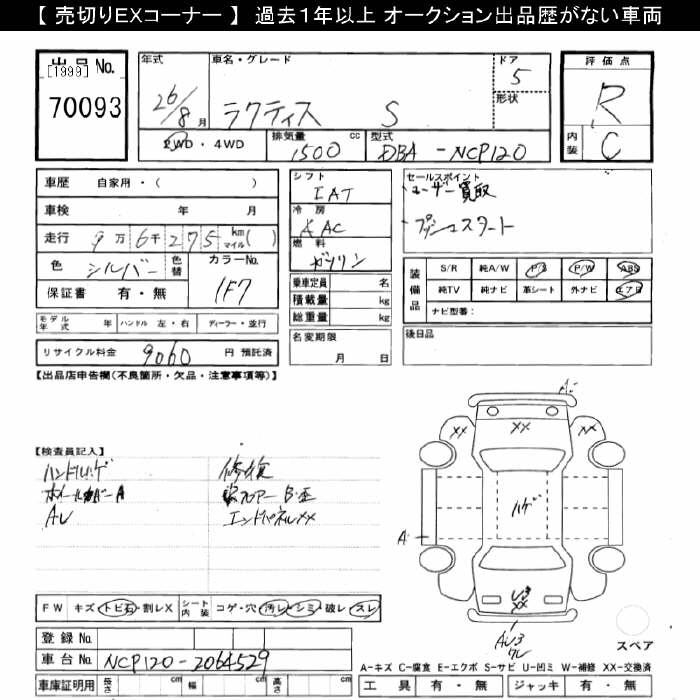 【 売切りEXコーナー 】 過去１年以上 オークション出品歴がない車両
出品No.
[1999]
70093
年式 26/8月
車名・グレード ラクティス S
ドア 5
形状
2WD・4WD
排気量 1500 cc
型式 DBA-NCP120
評価点 R
内装 C
車歴 自家用・( )
車検 年 月
走行 9万6千275 km マイル( )
色 シルバー 色替 カラーNo. 1F7
保証書 有・無
モデル年式 年 ハンドル 左・右 ディーラー・並行
リサイクル料金 9060 円 預託済
シフト IAT
冷房 AAC
燃料 ガソリン
乗車定員 名
積載量 kg
総重量 kg
名変期限 月 日
セールスポイント
ユーザー買取
プッシュスタート
装備品 S/R 純A/W P/S P/W ABS
純TV 純ナビ 革シート 外ナビ エアB
ナビ型番:
後日品
【出品店申告欄(不良箇所・欠品・注意事項等)】
【検査員記入】
ハンドルハゲ
ホイールカバーA
AU
修復
フロアー B・歪
エンドパネルXX
A
XX XX XX
ハゲ
A
U3
XX
AU3
ワレ
スペア
FW キズ・トビ石・割レX シート内装 コゲ・穴・汚レ・シミ・破レ・スレ
登録No.
車台No. NCP120-2064529
車庫証明用 長さ cm 幅 cm 高さ cm
A-キズ C-腐食 E-エクボ S-サビ U-凹ミ W-補修 XX-交換済
工具 有・無 ジャッキ 有・無